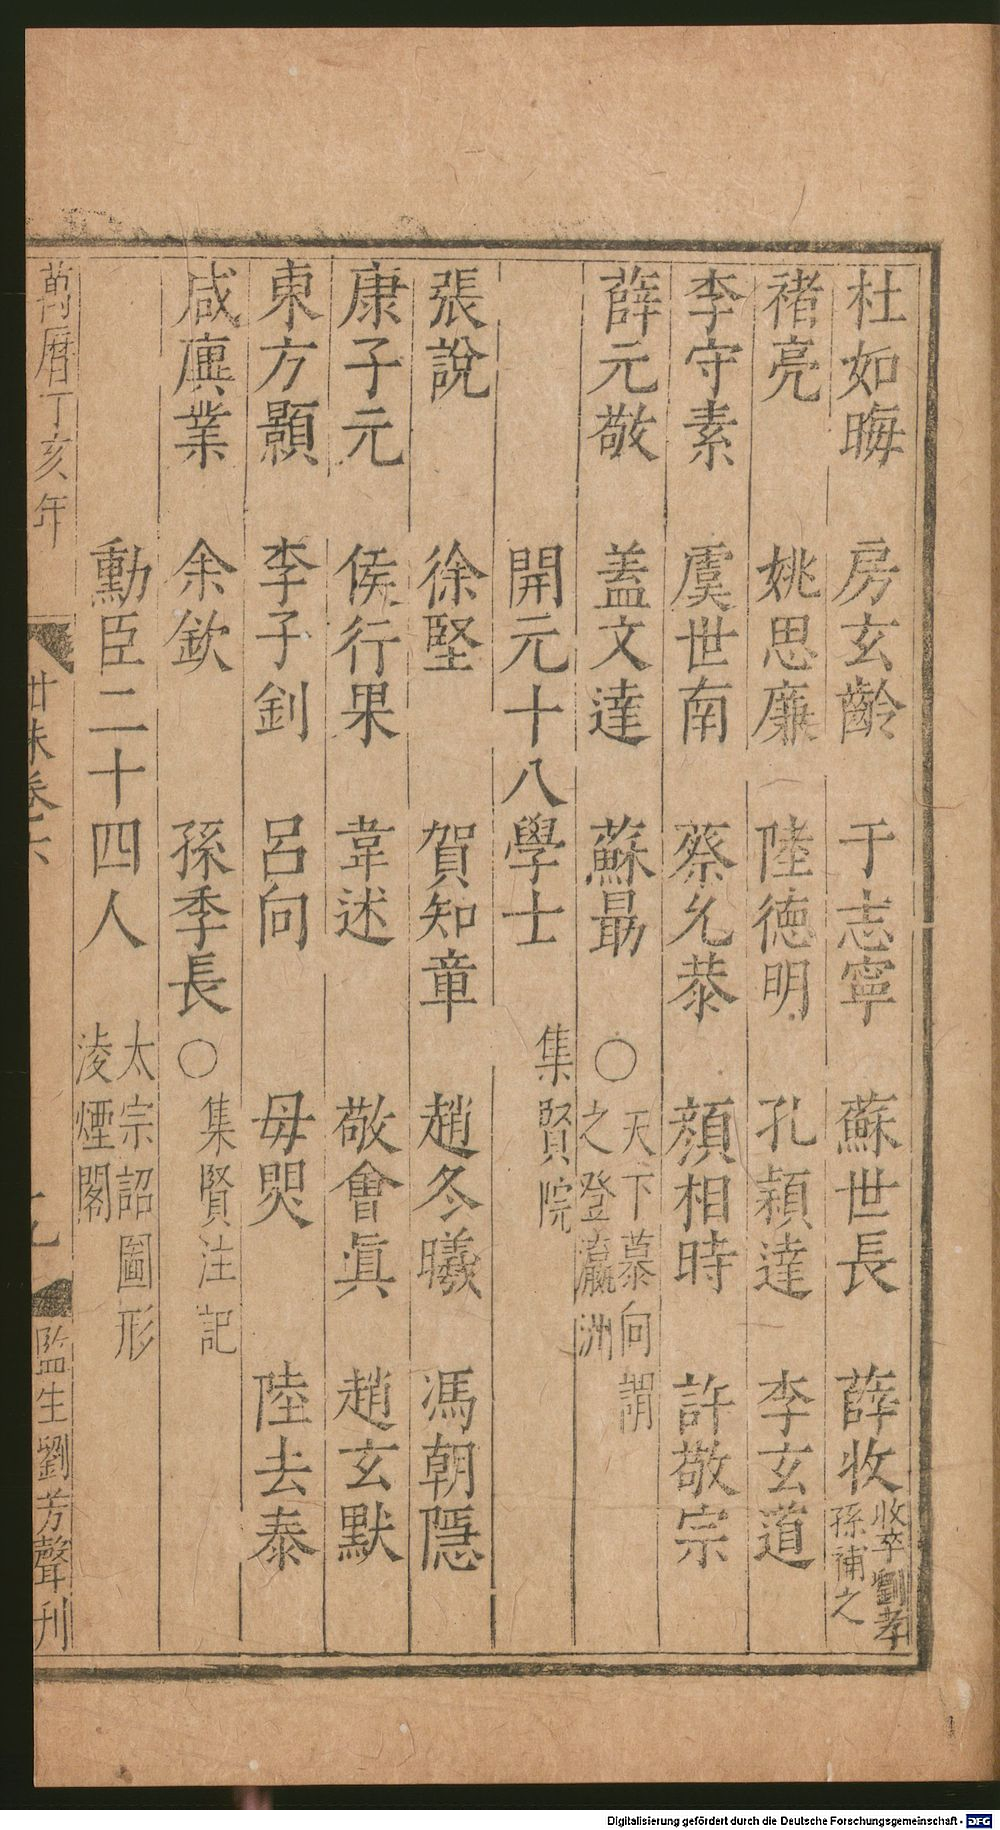 杜如晦　房玄齡　于志寧　蘇世長　薛收 收卒劉孝孫補之
褚亮　姚思廉　陸德明　孔穎達　李玄道
李守素　虞世南　蔡允恭　顏相時　許敬宗
薛元敬　蓋文達　蘇勗　○ 天下慕向謂之登瀛洲
開元十八學士 集賢院
張說　徐堅　賀知章　趙冬曦　馮朝隱
康子元　侯行果　韋述　敬會真　趙玄默
東方顥　李子釗　呂向　毋煚　陸去泰
咸廙業　余欽　孫季長　○ 集賢注記
勳臣二十四人 太宗詔圖形淩煙閣
萬曆丁亥年
卷六
監生劉芳聲刊
Digitalisierung gefördert durch die Deutsche Forschungsgemeinschaft - DFG